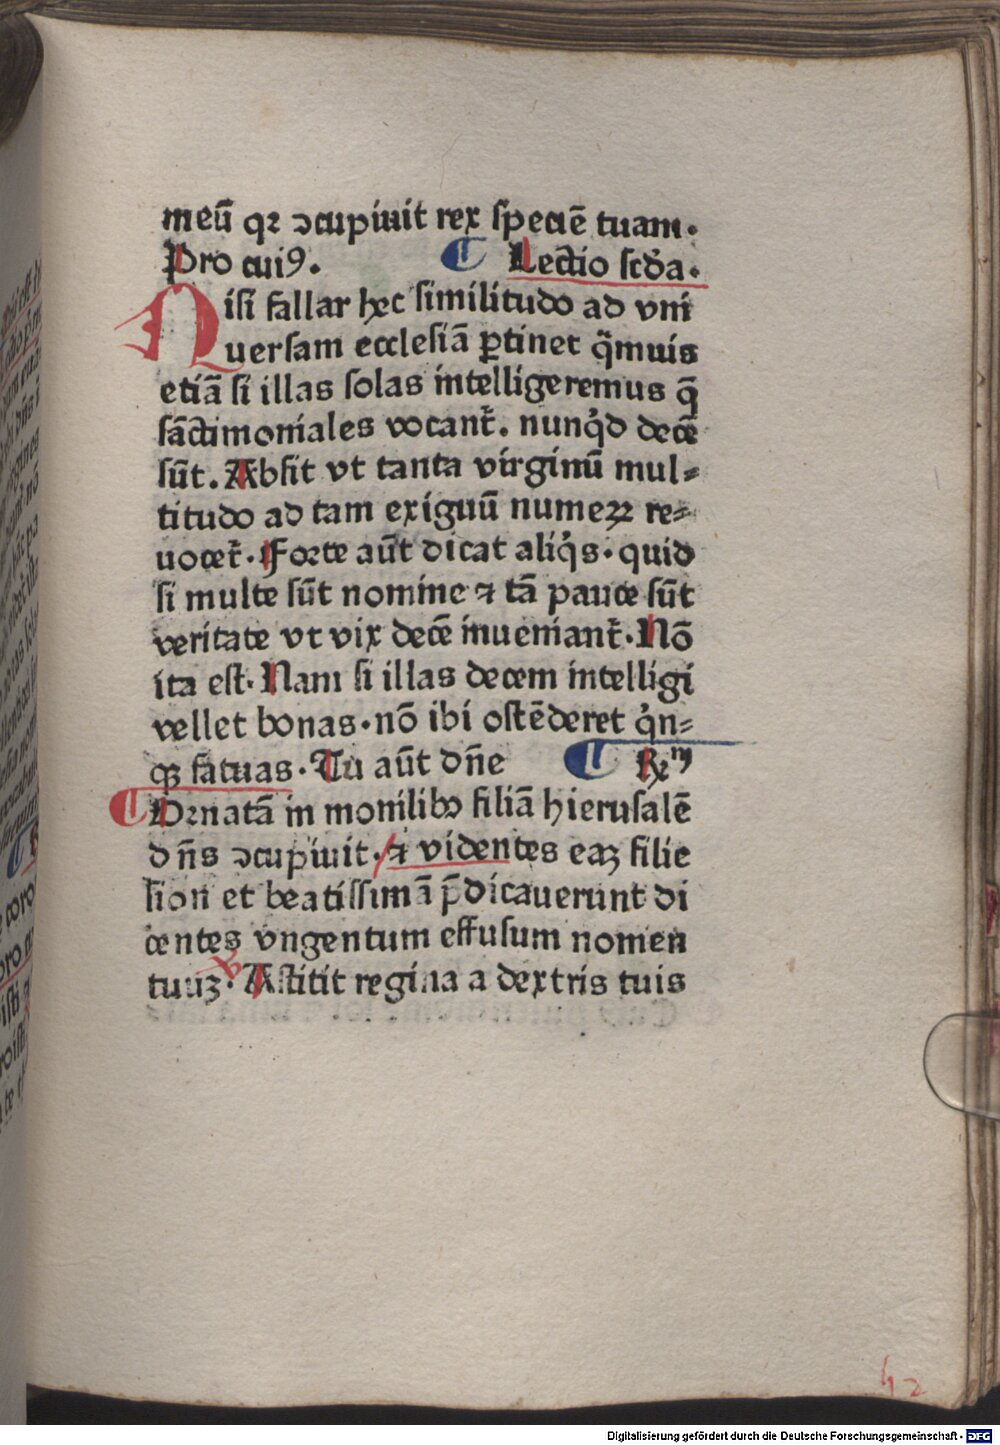 meū qꝛ ↄcupiuit rex speciē tuam.
Pro cuiꝰ. ¶ Lectio scďa.
Nisi fallar hec similitudo ad vni
uersam ecclesiā ꝑtinet q̄muis
etiā si illas solas intelligeremus q̄
sāctimoniales vocant̄. nunqͥd decē
sūt. Absit vt tanta virginū mul⸗
titudo ad tam exiguū numeꝝ re⸗
uocet̄. Forte aūt dicat aliqͥs. quid
si multe sūt nomine ⁊ tā pauce sūt
veritate vt vix decē inueniant̄. Nō
ita est. Nam si illas decem intelligi
vellet bonas. nō ibi ostēderet qͥn⸗
qꝫ fatuas. Tu aūt dn̄e ¶ ℞m
Ornatā in monilibꝰ filiā hierusalē
dn̄s ↄcupiuit. ⁊ videntes eaꝫ filie
sion et beatissimā p̄dicauerunt di
centes vngentum effusum nomen
tuuꝫ. V Astitit regina a dextris tuis
42
Digitalisierung gefördert durch die Deutsche Forschungsgemeinschaft - DFG